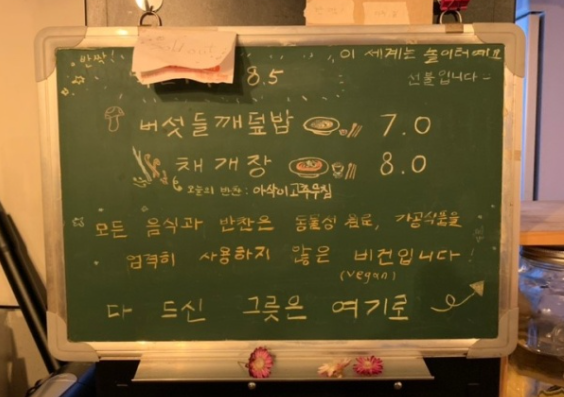 이 세계는 놀이터예요
반짝!
선불입니다~
8.5
버섯들깨덮밥 7.0
채개장 8.0
오늘의 반찬: 아삭이고추무침
모든 음식과 반찬은 동물성 원료, 가공식품을
엄격히 사용하지 않은 비건입니다!
(vegan)
다 드신 그릇은 여기로